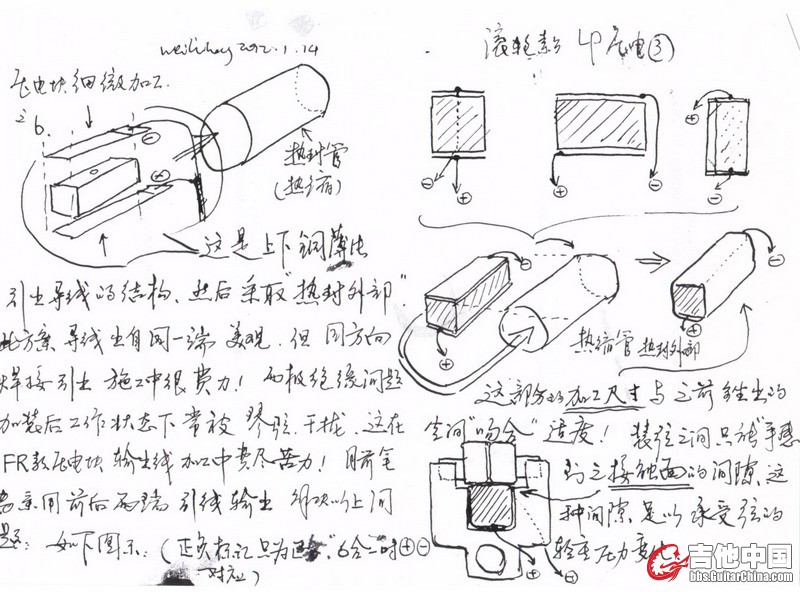 weilihay 2012.1.14
滚轮款 LP 压电③
压电块细微加工.
之6.
热封管
(热缩)
这是上下铜薄片
引出导线的结构、然后采取"热封外部"
此方案 导线出自同一端 美观. 但 同方向
焊接引出 施工中很费力! 两极绝缘问题
加装后工作状态下常被 琴弦 干扰. 这在
FR款压电块 输出线加工中费尽苦力! 目前笔
者采用前后两端 引线输出 解决以上问
题: 如下图示: (正负标记只为 6合一时
对应)
⊕ ⊖
热缩管 热封外部
这部分的加工尺寸与之前 的
空间"吻合"适度! 装弦之间 只能"手感
到之接触面的间隙. 这
种间隙 足以承受弦的
轻重压力变
吉他中国
bbs.GuitarChina.com